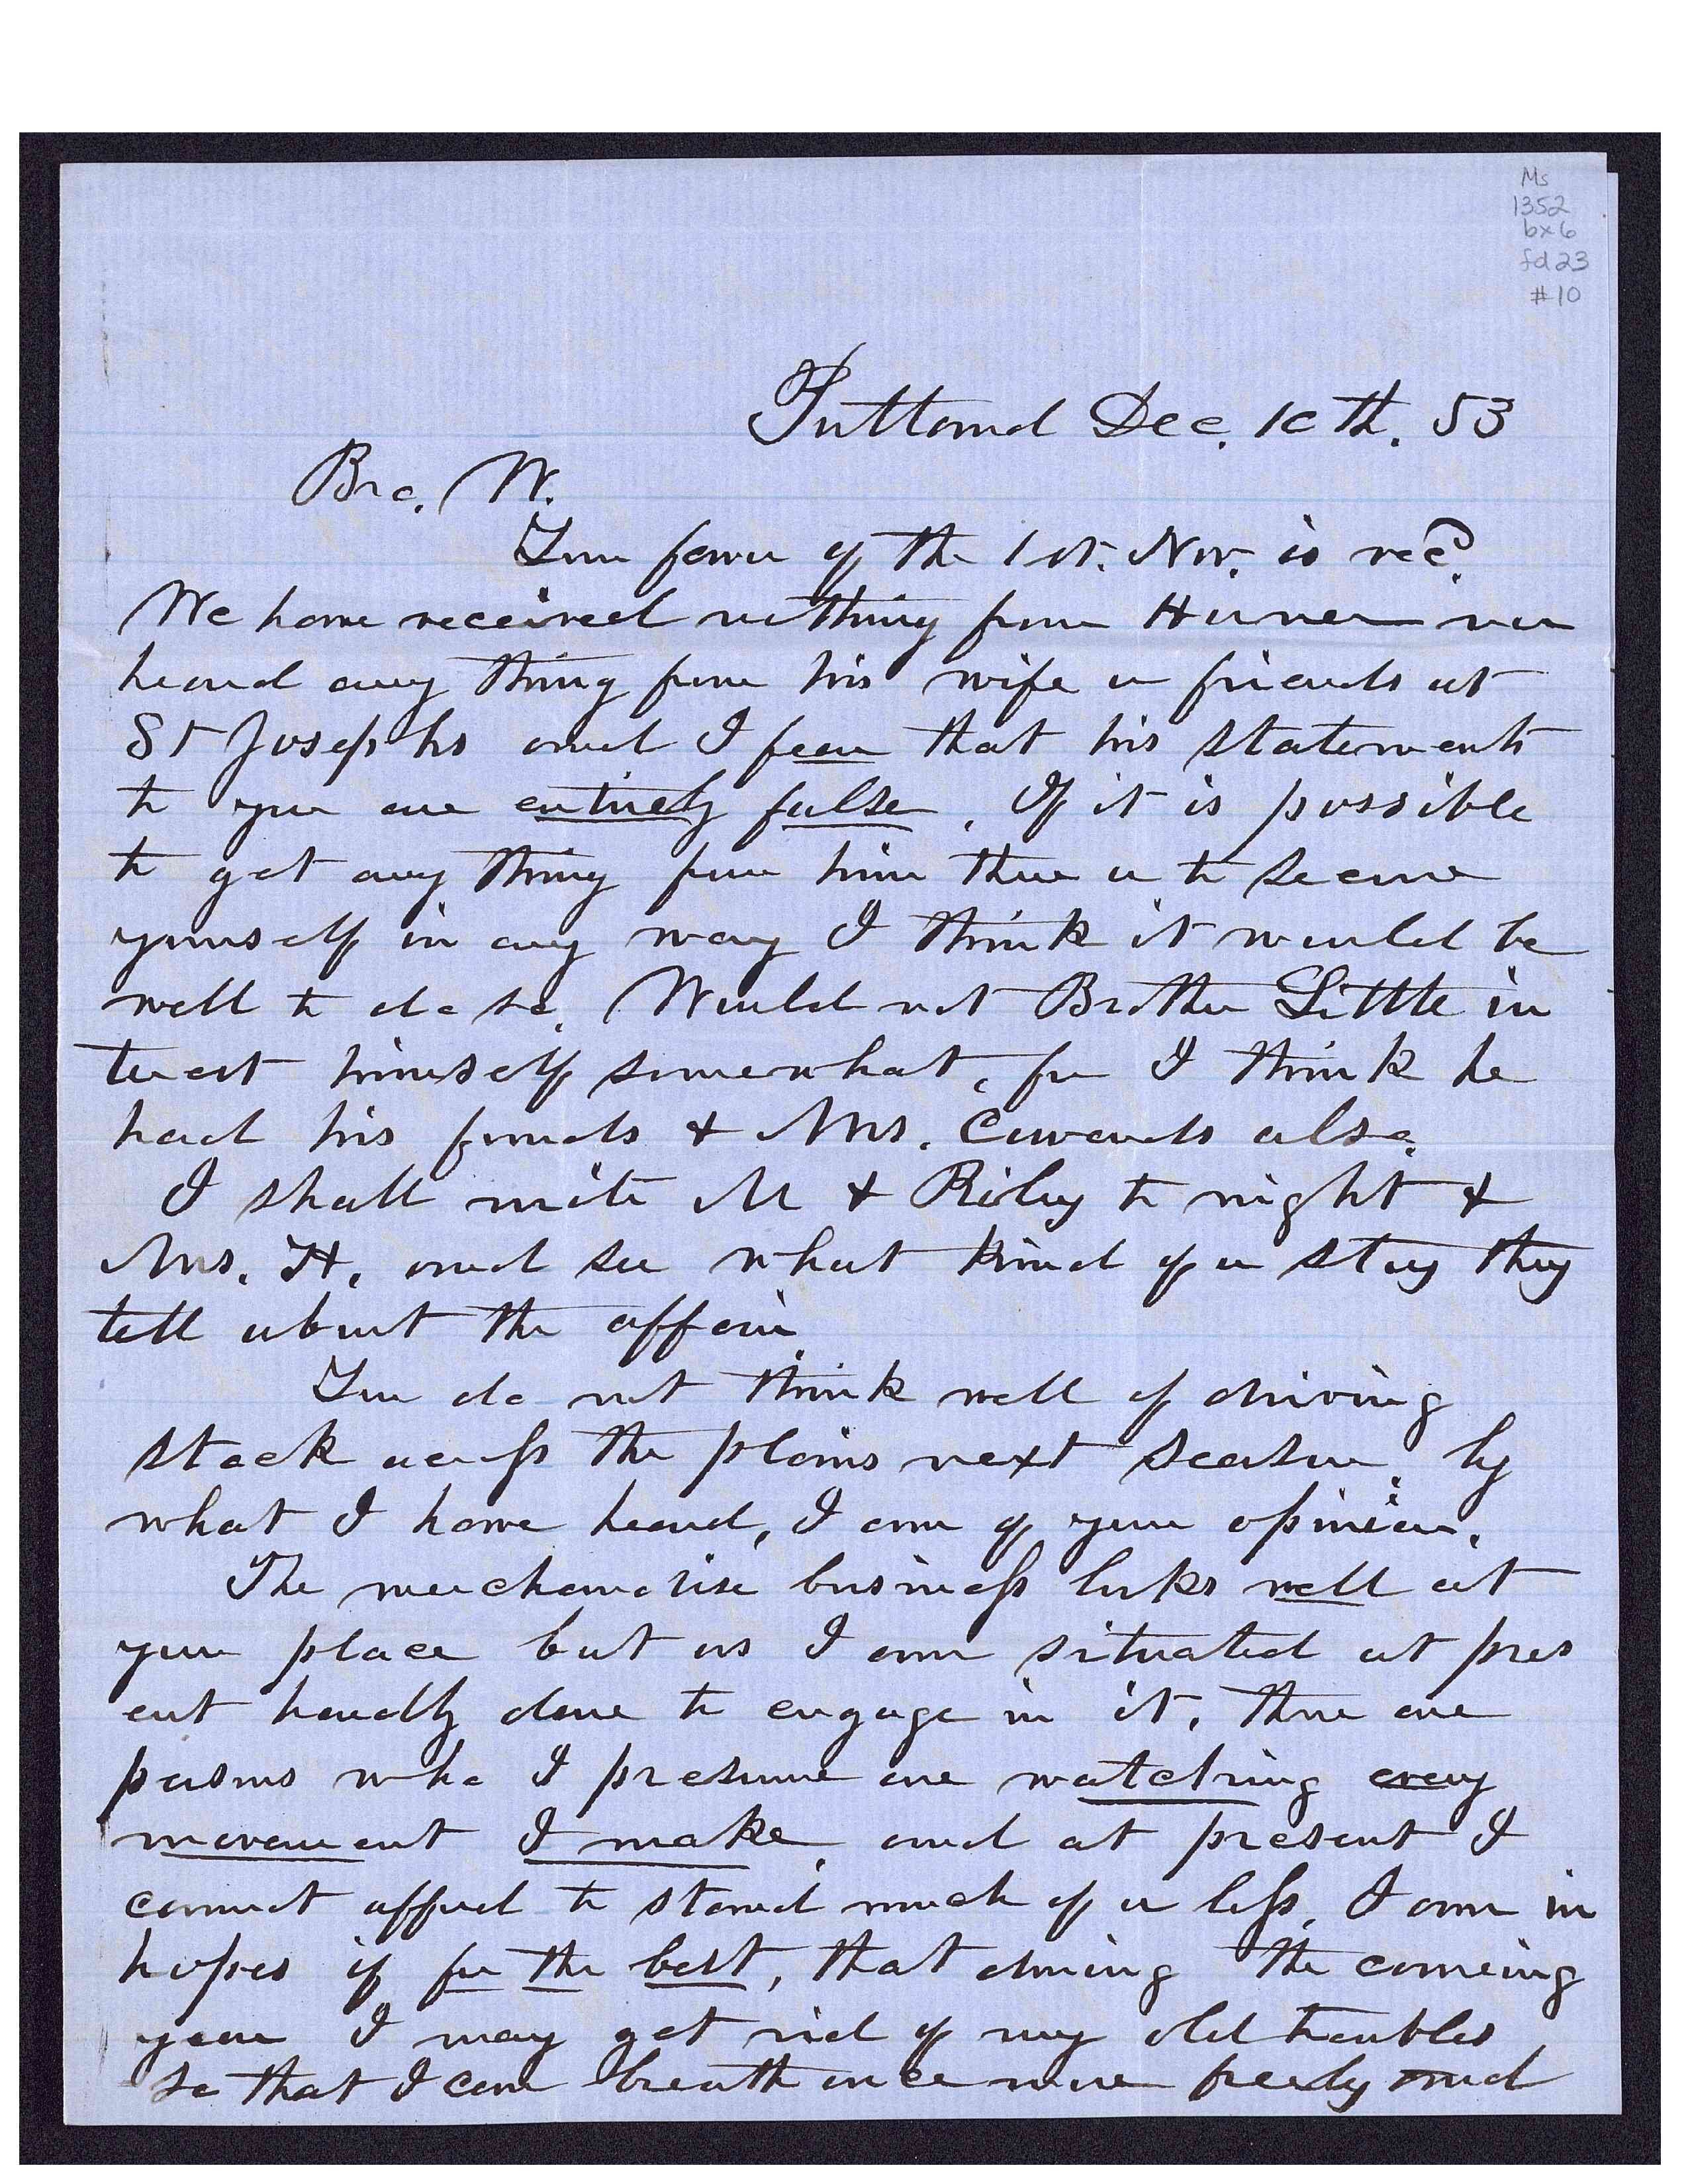 Ms
1352
bx6
fd23
#10
Dec. 10th. 53
Bro. W.
Your favor of the 1st. Nov. is recd.
We have received nothing from nor
heard any thing from his wife or friends at
St Josephs and I fear that his statements
to you are entirely false. If it is possible
to get any thing from him there or to secure
yourself in any way I think it would be
well to do so. Would not Brother Little in
terest himself somewhat, for I think he
had his funds & Mrs. also.
I shall write M & Riley to night &
Mrs. H. and see what kind of a story they
tell about the affair.
You do not think well of driving
stock across the plains next season. by
what I have heard, I am of your opinion.
The merchandise business looks well at
your place but as I am situated at pres
ent hardly dare to engage in it. There are
persons who I presume are watching every
movement I make, and at present I
cannot afford to stand much of a loss. I am in
hopes if for the best, that during the comeing
year I may get rid of my old troubles
so that I can breath once more freely and